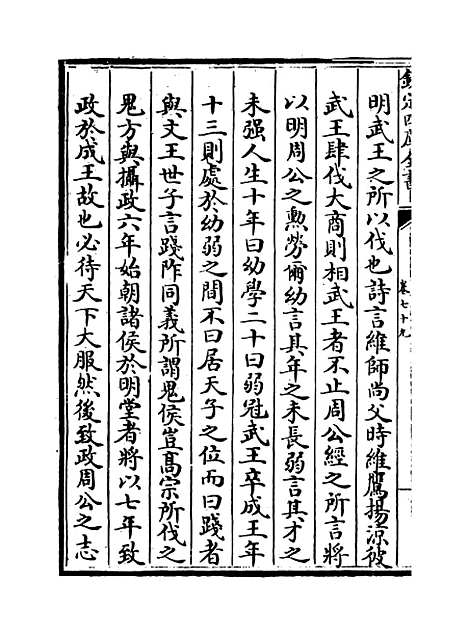 欽定四庫全書
卷七十九
明武王之所以伐也詩言維師尚父時維鷹揚涼彼
武王肆伐大商則相武王者不止周公經之所言將
以明周公之勲勞爾幼言其年之未長弱言其才之
未强人生十年曰幼學二十曰弱冠武王卒成王年
十三則處於幼弱之間不曰居天子之位而曰踐者
與文王世子言踐阼同義所謂鬼侯豈髙宗所伐之
鬼方與攝政六年始朝諸侯於明堂者將以七年致
政於成王故也必待天下大服然後致政周公之志